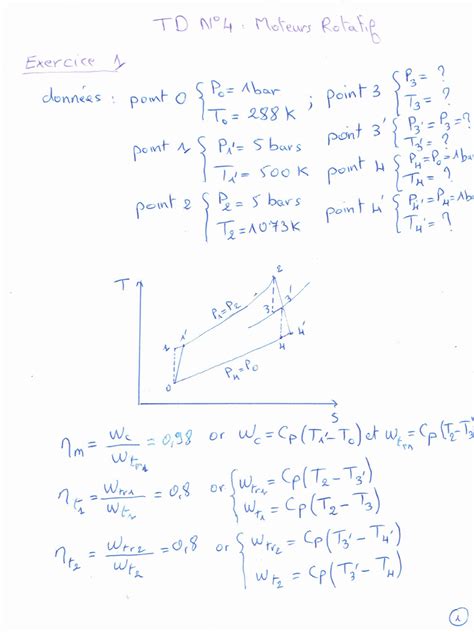 TD N°4 : Moteurs Rotatif
Exercice 1
données : point 0 { P₀ = 1 bar ; T₀ = 288 K ; point 3 { P₃ = ? T₃ = ?
point 1 { P₁' = 5 bars T₁' = 500 K point 3' { P₃' = P₃ = ? T₃' = ?
point 2 { P₂ = 5 bars T₂ = 1073 K point 4 { P₄ = P₀ = 1 bar T₄ = ?
point 4' { P₄' = P₄ = 1 bar T₄' = ?
T
2
P₁ = P₂
3 3'
1 1'
4 4'
P₄ = P₀
0
S
η_m = w_c / w_tr₁ = 0,98 or w_c = Cp (T₁' - T₀) et w_tr₁ = Cp (T₂ - T₃'
η_t₁ = w_tr₁ / w_t₁ = 0,8 or { w_tr₁ = Cp (T₂ - T₃') w_t₁ = Cp (T₂ - T₃)
η_t₂ = w_tr₂ / w_t₂ = 0,8 or { w_tr₂ = Cp (T₃' - T₄') w_t₂ = Cp (T₃' - T₄)
1